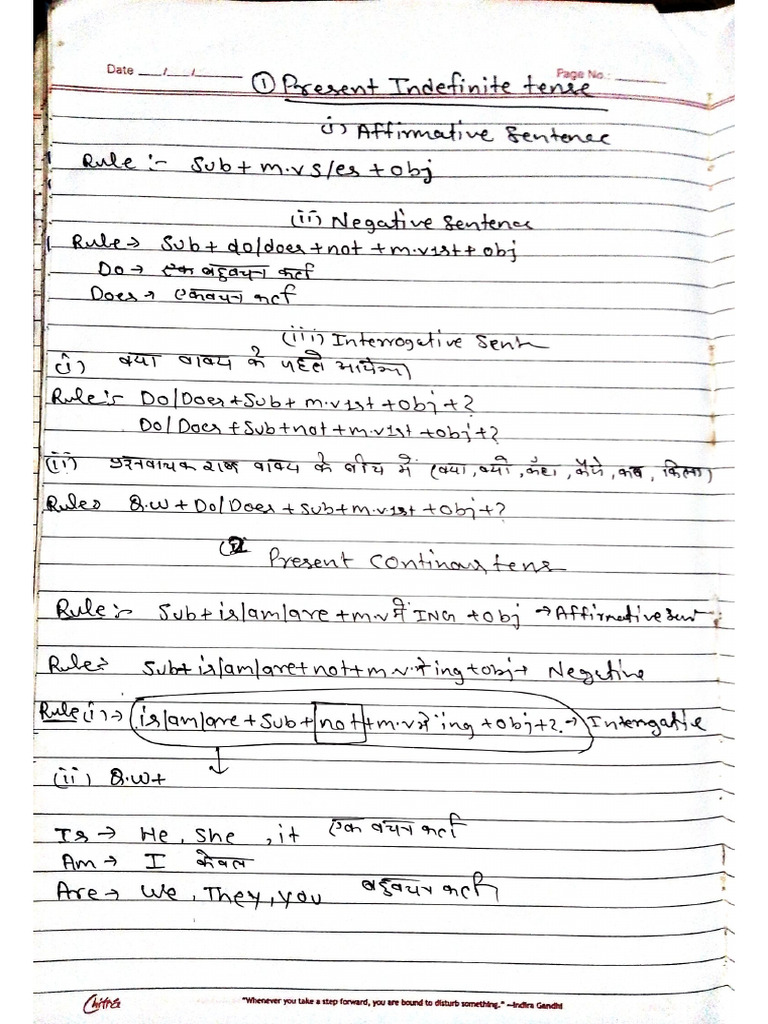 Date ___/___/______ Page No.: ______
① Present Indefinite tense
(i) Affirmative Sentence
Rule :- Sub + m.v s/es + obj
(ii) Negative Sentence
Rule → Sub + do/does + not + m.v 1st + obj
Do → एक बहुवचन कर्ता
Does → एकवचन कर्ता
(iii) Interrogative Sent
(i) क्या वाक्य के पहले आयेगा
Rule :- Do/Does + Sub + m.v 1st + obj + ?
Do/Does + Sub + not + m.v 1st + obj + ?
(ii) प्रश्नवाचक शब्द वाक्य के बीच में (क्या, क्यो, कँहा, कैसे, कब, किसका)
Rule → Q.w + Do/Does + Sub + m.v 1st + obj + ?
② Present Continous tens
Rule :- Sub + is/am/are + m.v में ING + obj → Affirmative Sent
Rule :- Sub + is/am/are + not + m.v. में ing + obj → Negative
Rule (i) → is/am/are + Sub + not + m.v में ing + obj + ? → Interrogative
(ii) Q.w +
Is → He, She, it एक वचन कर्ता
Am → I केवल
Are → We, They, you बहुवचन कर्ता
Chitra "Whenever you take a step forward, you are bound to disturb something." –Indira Gandhi